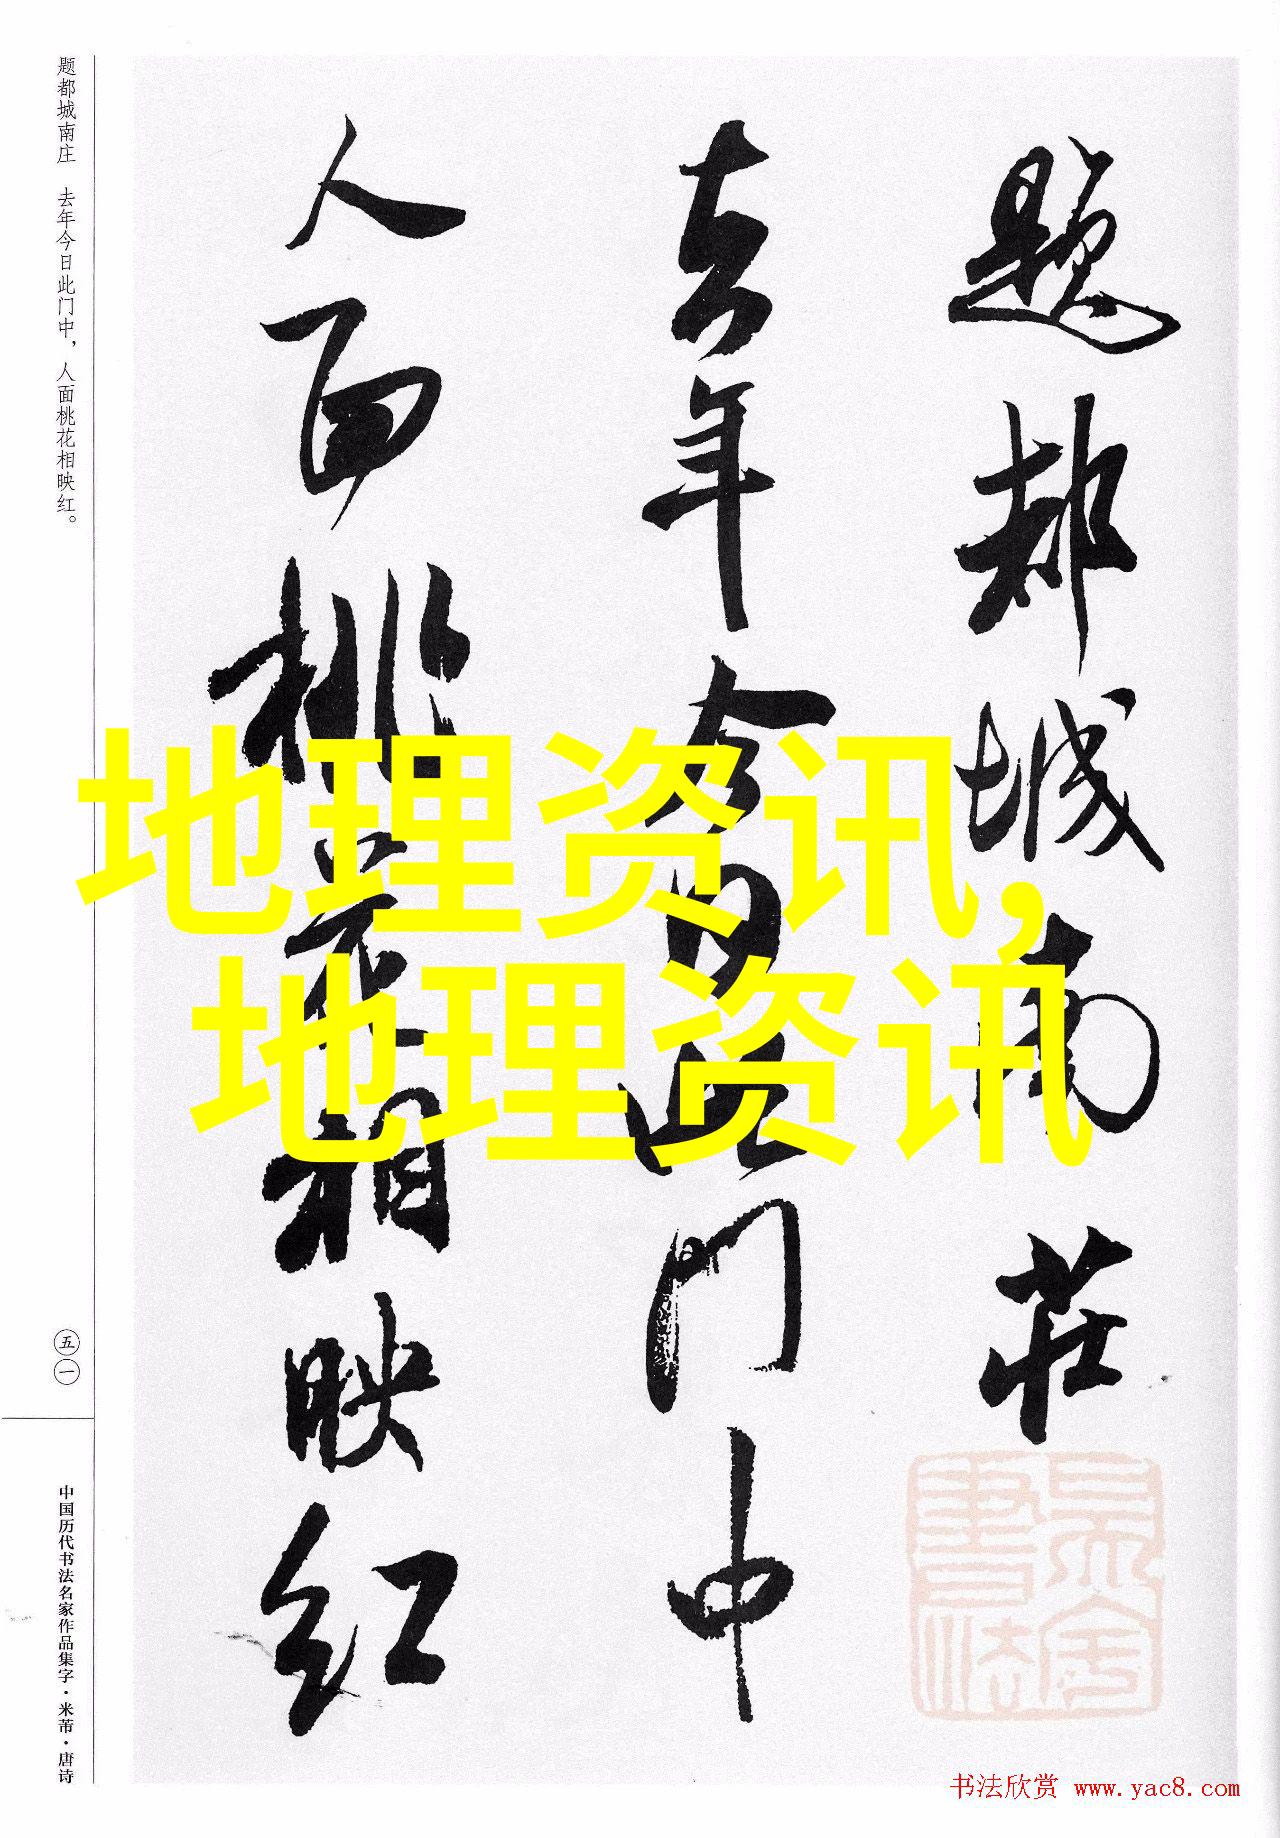 题都城南莊
去年今日此门中
人面桃花相映红
题都城南庄　去年今日此门中，人面桃花相映红。
五一
中国历代书法名家作品集字·米芾·唐诗
地理资讯，
地理资讯
书法欣赏 www.yac8.com